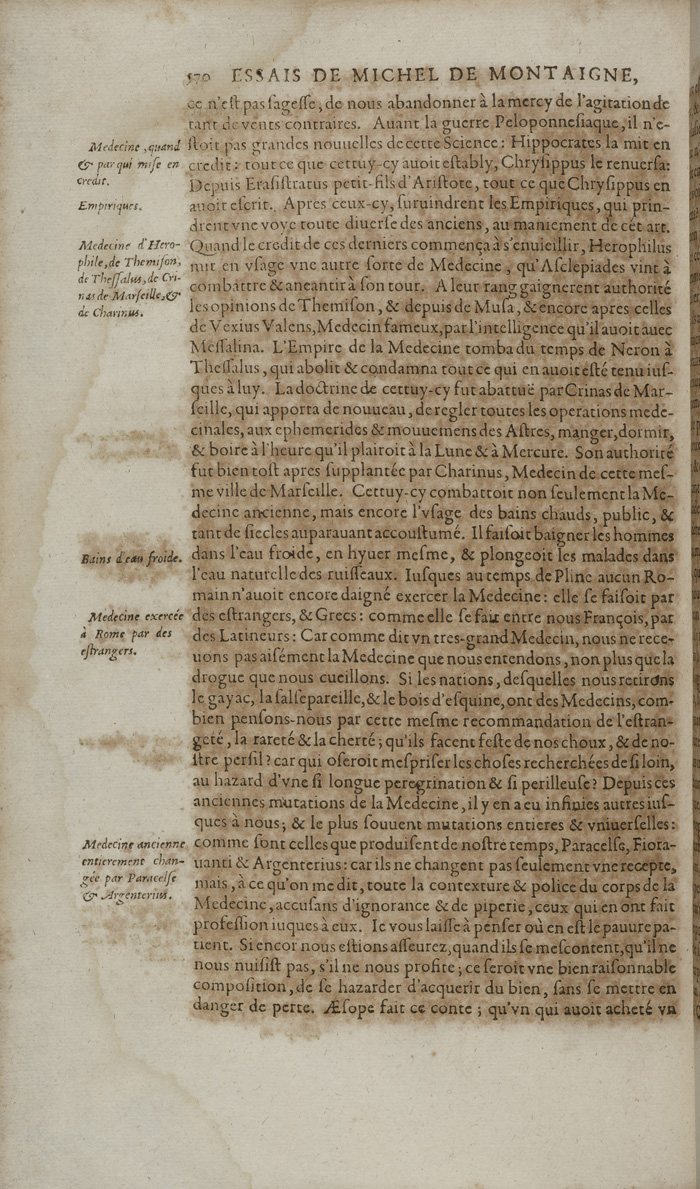 570 ESSAIS DE MICHEL DE MONTAIGNE,
ce n'eſt pas ſageſſe, de nous abandonner à la mercy de l'agitation de
tant de vents contraires. Auant la guerre Peloponneſiaque, il n'e-
ſtoit pas grandes nouuelles de cette Science: Hippocrates la mit en
credit: tout ce que cettuy-cy auoit eſtably, Chryſippus le renuerſa:
Depuis Eraſiſtratus petit-fils d'Ariſtote, tout ce que Chryſippus en
auoit eſcrit. Apres ceux-cy, ſuruindrent les Empiriques, qui prin-
drent vne voye toute diuerſe des anciens, au maniement de cét art.
Quand le credit de ces derniers commença à s'enuieillir, Herophilus
mit en vſage vne autre ſorte de Medecine, qu'Aſclepiades vint à
combattre & aneantir à ſon tour. A leur rang gaignerent authorité
les opinions de Themiſon, & depuis de Muſa, & encore apres celles
de Vexius Valens, Medecin fameux, par l'intelligence qu'il auoit auec
Meſſalina. L'Empire de la Medecine tomba du temps de Neron à
Theſſalus, qui abolit & condamna tout ce qui en auoit eſté tenu iuſ-
ques à luy. La doctrine de cettuy-cy fut abattuë par Crinas de Mar-
ſeille, qui apporta de nouueau, de regler toutes les operations mede-
cinales, aux ephemerides & mouuemens des Aſtres, manger, dormir,
& boire à l'heure qu'il plairoit à la Lune & à Mercure. Son authorité
fut bien toſt apres ſupplantée par Charinus, Medecin de cette meſ-
me ville de Marſeille. Cettuy-cy combattoit non ſeulement la Me-
decine ancienne, mais encore l'vſage des bains chauds, public, &
tant de ſiecles auparauant accouſtumé. Il faiſoit baigner les hommes
dans l'eau froide, en hyuer meſme, & plongeoit les malades dans
l'eau naturelle des ruiſſeaux. Iuſques au temps de Pline aucun Ro-
main n'auoit encore daigné exercer la Medecine: elle ſe faiſoit par
des eſtrangers, & Grecs: comme elle ſe fait entre nous François, par
des Latineurs: Car comme dit vn tres-grand Medecin, nous ne rece-
uons pas aiſément la Medecine que nous entendons, non plus que la
drogue que nous cueillons. Si les nations, deſquelles nous retirons
le gayac, la ſalſepareille, & le bois d'eſquine, ont des Medecins, com-
bien penſons-nous par cette meſme recommandation de l'eſtran-
geté, la rareté & la cherté; qu'ils facent feſte de nos choux, & de no-
ſtre perſil? car qui oſeroit meſpriſer les choſes recherchées de ſi loin,
au hazard d'vne ſi longue peregrination & ſi perilleuſe? Depuis ces
anciennes mutations de la Medecine, il y en a eu infinies autres iuſ-
ques à nous; & le plus ſouuent mutations entieres & vniuerſelles:
comme ſont celles que produiſent de noſtre temps, Paracelſe, Fiora-
uanti & Argenterius: car ils ne changent pas ſeulement vne recepte,
mais, à ce qu'on me dit, toute la contexture & police du corps de la
Medecine, accuſans d'ignorance & de piperie, ceux qui en ont fait
profeſſion iuques à eux. Ie vous laiſſe à penſer où en eſt le pauure pa-
tient. Si encor nous eſtions aſſeurez, quand ils ſe meſcontent, qu'il ne
nous nuiſiſt pas, s'il ne nous profite; ce ſeroit vne bien raiſonnable
compoſition, de ſe hazarder d'acquerir du bien, ſans ſe mettre en
danger de perte. Æſope fait ce conte; qu'vn qui auoit acheté vn
Medecine, quand
& par qui miſe en
credit.
Empiriques.
Medecine d'Hero-
phile, de Themiſon,
de Theſſalus, de Cri-
nas de Marſeille, &
de Charinus.
Bains d'eau froide.
Medecine exercée
à Rome par des
eſtrangers.
Medecine ancienne
entierement chan-
gée par Paracelſe
& Argenterius.